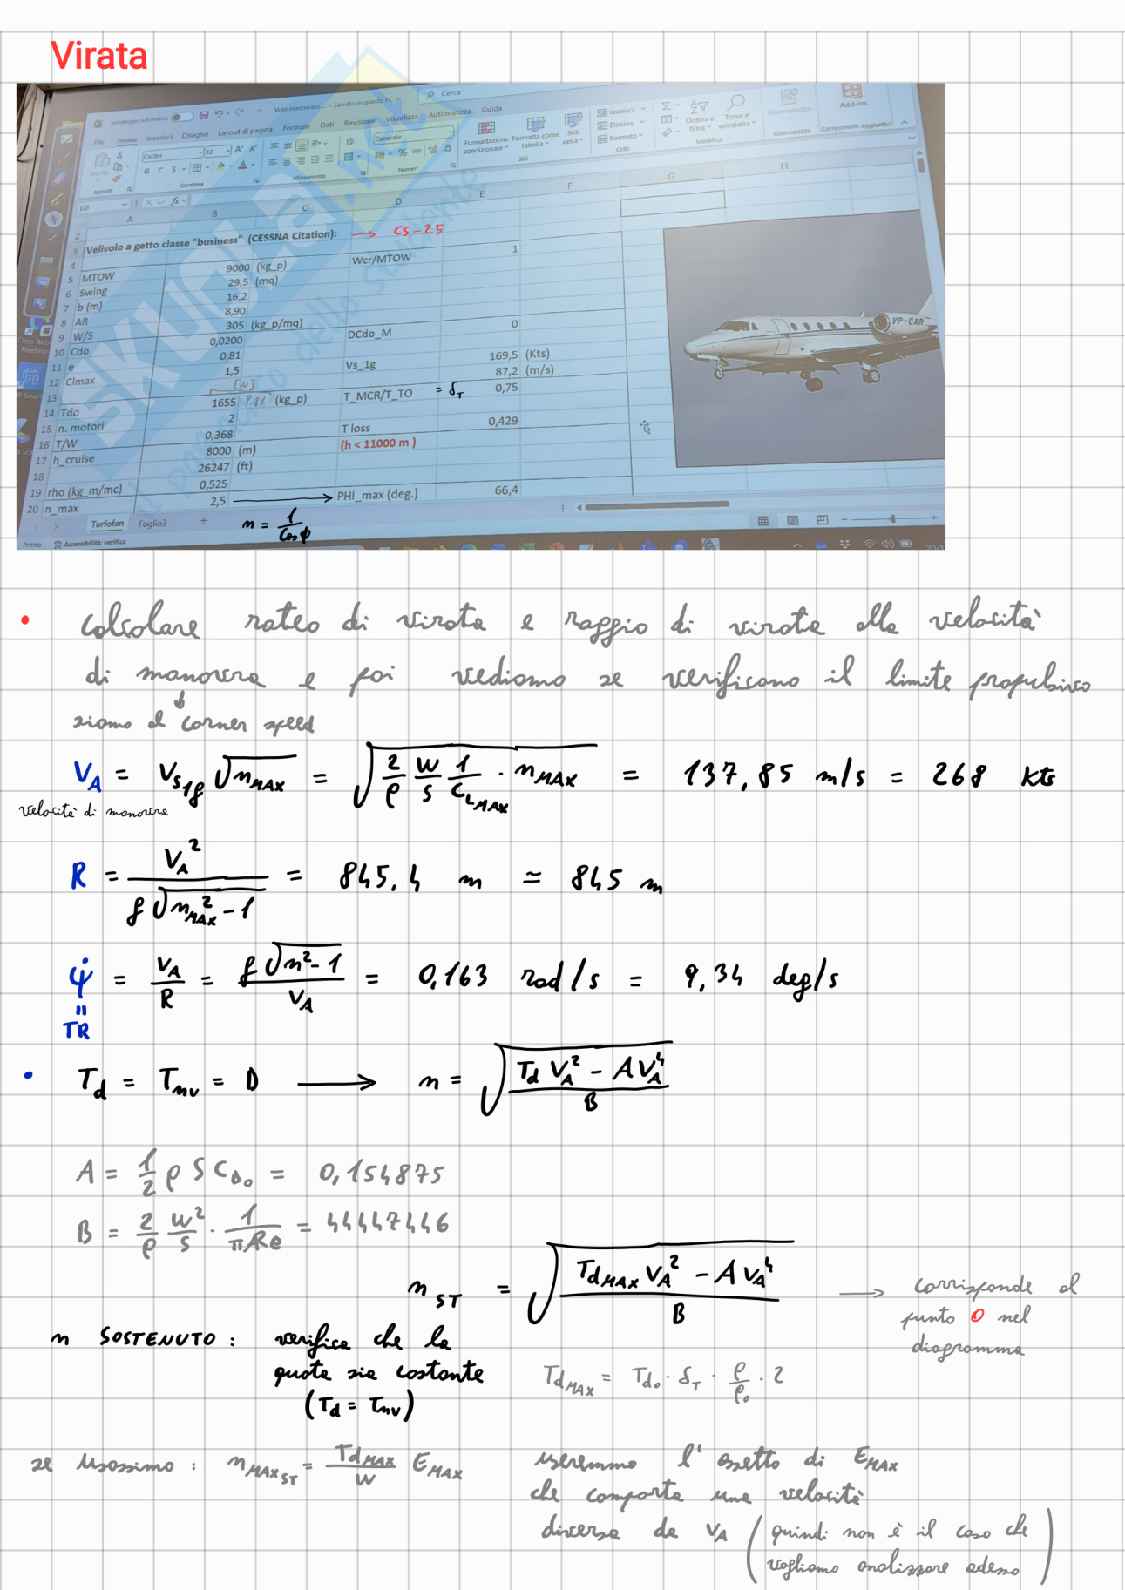 Virata
Cerca
File
Disegno
Layout di pagina
Formule
Dati
Revisione
Visualizza
Automatizza
Guida
Velivolo a getto classe "business" (CESSNA Citation): → CS-25
MTOW 9000 (kg_p) Wcr/MTOW 1
Swing 29,5 (mq)
b (m) 16,2
AR 8,90
W/S 305 (kg_p/mq) DCdo_M 0
Cdo 0,0200
e 0,81 Vs_1g 169,5 (Kts)
Clmax 1,5 87,2 (m/s)
Tdo 1655 (kg_p) T_MCR/T_TO = δT 0,75
n. motori 2
T/W 0,368 T loss 0,429
h_cruise 8000 (m) (h < 11000 m)
26247 (ft)
rho (kg_m/mc) 0,525
n_max 2,5 → PHI_max (deg.) 66,4
Turbofan Foglio2
n = 1/cos φ
• Calcolare rateo di virata e raggio di virata alla velocità
di manovra e poi vediamo se verificano il limite propulsivo
↓
siamo al corner speed
VA = Vs1g √nMAX = √(2/ρ W/S 1/CLMAX · nMAX) = 137,85 m/s = 268 kts
velocità di manovra
R = VA²/(g√(nMAX² - 1)) = 845,4 m ≃ 845 m
ψ̇ = VA/R = g√(n² - 1)/VA = 0,163 rad/s = 9,34 deg/s
=
TR
• Td = Tnv = D → n = √((Td VA² - A VA⁴)/B)
A = 1/2 ρ S CD0 = 0,154875
B = 2/ρ W²/S · 1/(π AR e) = 44447446
nST = √((TdMAX VA² - A VA⁴)/B) → corrisponde al
punto O nel
diagramma
n SOSTENUTO : verifica che la
quota sia costante
(Td = Tnv)
TdMAX = Td0 · δT · ρ/ρ0 · 2
se usassimo : nMAXST = TdMAX/W EMAX
useremmo l'assetto di EMAX
che comporta una velocità
diversa da VA (quindi non è il caso che
vogliamo analizzare adesso)